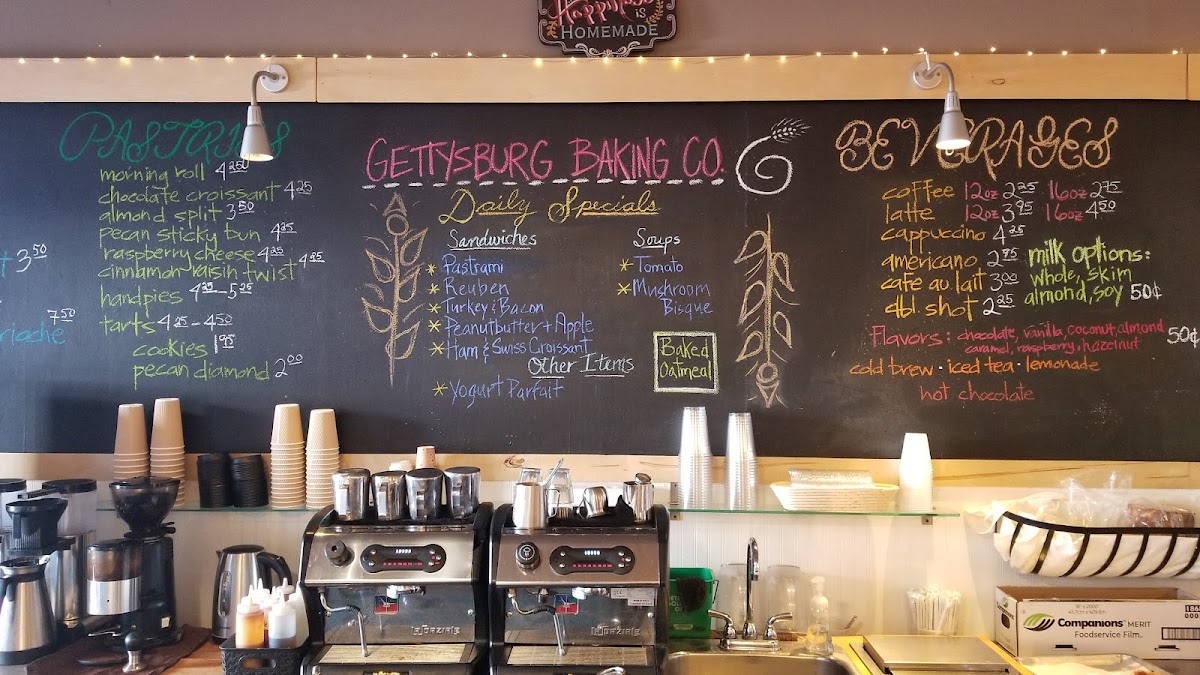 Happiness
IS
HOMEMADE
PASTRIES
morning roll 4 250
chocolate croissant 4 25
almond split 3 50
pecan sticky bun 4 25
raspberry cheese 4 25
cinnamon raisin twist 4 25
handpies 4 25 - 5 25
tarts 4 25 - 4 50
cookies 1 95
pecan diamond 2 00
3 50
7 50
GETTYSBURG BAKING CO.
Daily Specials
Sandwiches
* Pastrami
* Reuben
* Turkey & Bacon
* Peanutbutter + Apple
* Ham & Swiss Croissant
Other Items
* Yogurt Parfait
Soups
* Tomato
* Mushroom
Bisque
Baked
Oatmeal
BEVERAGES
coffee 12oz 2 25 16oz 2 75
latte 12oz 3 95 16oz 4 50
cappuccino 4 25
americano 2 75
cafe au lait 3 00
dbl. shot 2 25
milk options:
whole, skim
almond, soy 50¢
Flavors: chocolate, vanilla, coconut, almond
caramel, raspberry, hazelnut 50¢
cold brew · iced tea · lemonade
hot chocolate
Companions MERIT
Foodservice Film